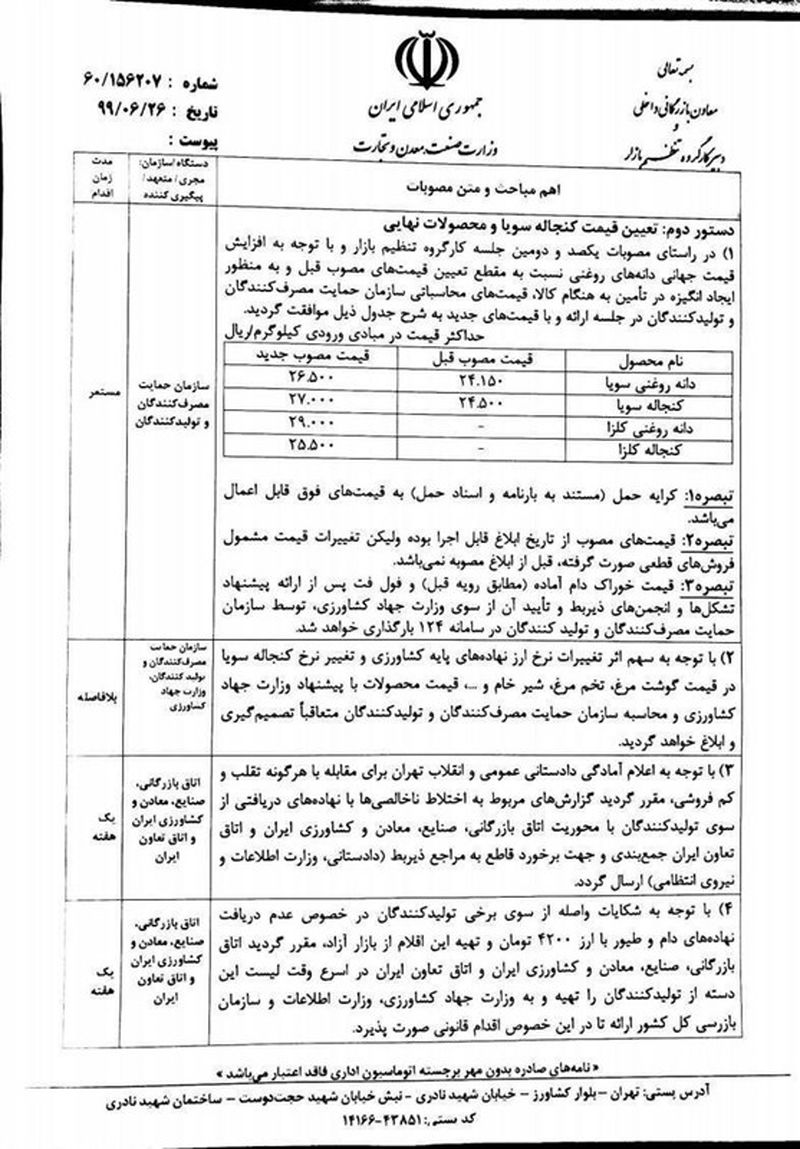 بسمه تعالی
معاون بازرگانی داخلی
و
دبیر کارگروه تنظیم بازار
جمهوری اسلامی ایران
وزارت صنعت، معدن و تجارت
شماره : ۶۰/۱۵۶۲۰۷
تاریخ : ۹۹/۰۶/۲۶
پیوست :
اهم مباحث و متن مصوبات
دستگاه/سازمان:
مجری/ متعهد/
پیگیری کننده
مدت
زمان
اقدام
دستور دوم: تعیین قیمت کنجاله سویا و محصولات نهایی
۱) در راستای مصوبات یکصد و دومین جلسه کارگروه تنظیم بازار و با توجه به افزایش
قیمت جهانی دانه‌های روغنی نسبت به مقطع تعیین قیمت‌های مصوب قبل و به منظور
ایجاد انگیزه در تأمین به هنگام کالا، قیمت‌های محاسباتی سازمان حمایت مصرف‌کنندگان
و تولیدکنندگان در جلسه ارائه و با قیمت‌های جدید به شرح جدول ذیل موافقت گردید.
حداکثر قیمت در مبادی ورودی کیلوگرم/ریال
نام محصول قیمت مصوب قبل قیمت مصوب جدید
دانه روغنی سویا ۲۴.۱۵۰ ۲۶.۵۰۰
کنجاله سویا ۲۴.۵۰۰ ۲۷.۰۰۰
دانه روغنی کلزا - ۲۹.۰۰۰
کنجاله کلزا - ۲۵.۵۰۰
تبصره۱: کرایه حمل (مستند به بارنامه و اسناد حمل) به قیمت‌های فوق قابل اعمال
می‌باشد.
تبصره۲: قیمت‌های مصوب از تاریخ ابلاغ قابل اجرا بوده ولیکن تغییرات قیمت مشمول
فروش‌های قطعی صورت گرفته، قبل از ابلاغ مصوبه نمی‌باشد.
تبصره۳: قیمت خوراک دام آماده (مطابق رویه قبل) و فول فت پس از ارائه پیشنهاد
تشکل‌ها و انجمن‌های ذیربط و تأیید آن از سوی وزارت جهاد کشاورزی، توسط سازمان
حمایت مصرف‌کنندگان و تولید کنندگان در سامانه ۱۲۴ بارگذاری خواهد شد.
سازمان حمایت
مصرف‌کنندگان
و تولیدکنندگان
مستمر
۲) با توجه به سهم اثر تغییرات نرخ ارز نهاده‌های پایه کشاورزی و تغییر نرخ کنجاله سویا
در قیمت گوشت مرغ، تخم مرغ، شیر خام و ...، قیمت محصولات با پیشنهاد وزارت جهاد
کشاورزی و محاسبه سازمان حمایت مصرف‌کنندگان و تولیدکنندگان متعاقباً تصمیم‌گیری
و ابلاغ خواهد گردید.
سازمان حمایت
مصرف‌کنندگان و
تولید کنندگان،
وزارت جهاد
کشاورزی
بلافاصله
۳) با توجه به اعلام آمادگی دادستانی عمومی و انقلاب تهران برای مقابله با هرگونه تقلب و
کم فروشی، مقرر گردید گزارش‌های مربوط به اختلاط ناخالصی‌ها با نهاده‌های دریافتی از
سوی تولیدکنندگان با محوریت اتاق بازرگانی، صنایع، معادن و کشاورزی ایران و اتاق
تعاون ایران جمع‌بندی و جهت برخورد قاطع به مراجع ذیربط (دادستانی، وزارت اطلاعات و
نیروی انتظامی) ارسال گردد.
اتاق بازرگانی،
صنایع، معادن و
کشاورزی ایران
و اتاق تعاون
ایران
یک
هفته
۴) با توجه به شکایات واصله از سوی برخی تولیدکنندگان در خصوص عدم دریافت
نهاده‌های دام و طیور با ارز ۴۲۰۰ تومان و تهیه این اقلام از بازار آزاد، مقرر گردید اتاق
بازرگانی، صنایع، معادن و کشاورزی ایران و اتاق تعاون ایران در اسرع وقت لیست این
دسته از تولیدکنندگان را تهیه و به وزارت جهاد کشاورزی، وزارت اطلاعات و سازمان
بازرسی کل کشور ارائه تا در این خصوص اقدام قانونی صورت پذیرد.
اتاق بازرگانی،
صنایع، معادن و
کشاورزی ایران
و اتاق تعاون
ایران
یک
هفته
« نامه‌های صادره بدون مهر برجسته اتوماسیون اداری فاقد اعتبار می‌باشد »
آدرس پستی: تهران – بلوار کشاورز – خیابان شهید نادری – نبش خیابان شهید حجت‌دوست – ساختمان شهید نادری
کد پستی: ۴۳۸۵۱-۱۴۱۶۶